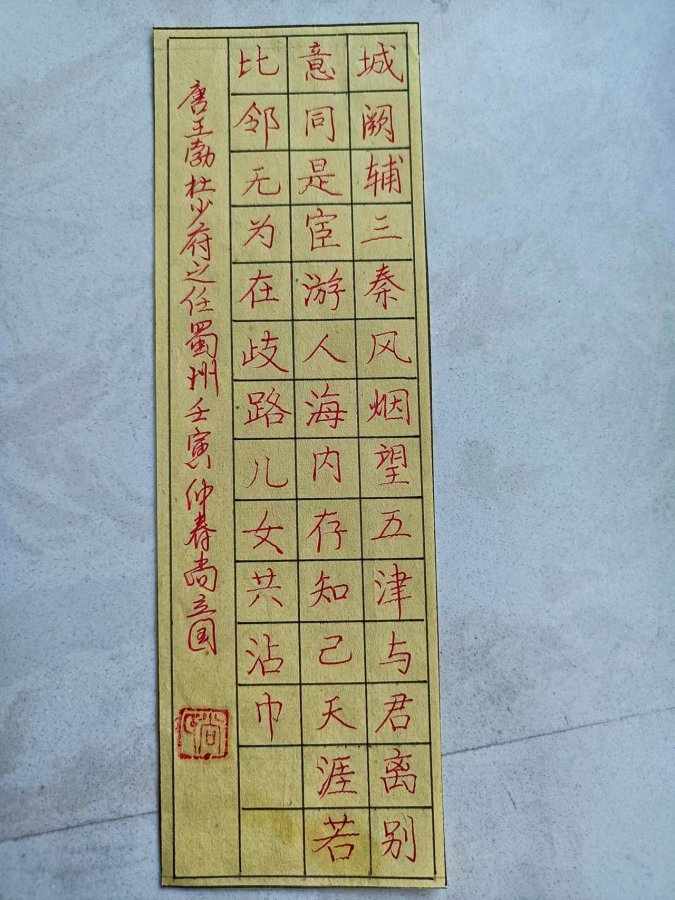 城阙辅三秦风烟望五津与君离别
意同是宦游人海内存知己天涯若
比邻无为在歧路儿女共沾巾
唐王勃杜少府之任蜀州壬寅仲春尚立国